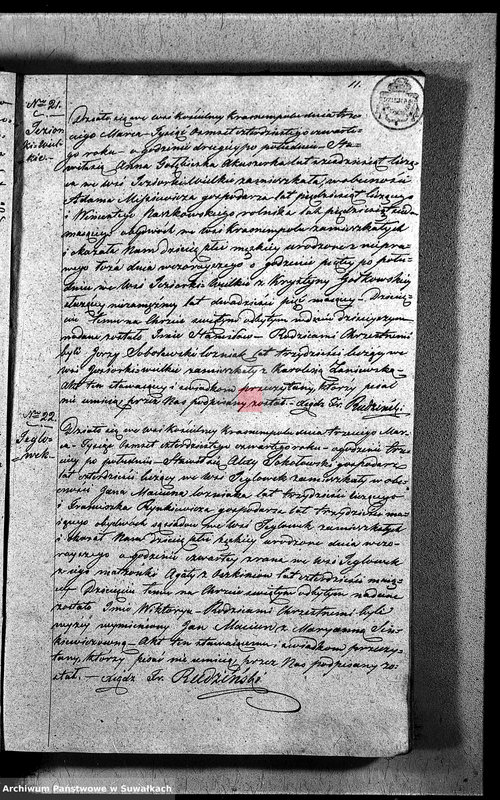 11.
Nro 21.
Jezior
ki wiel
kie.
Działo się we wsi kościelnej Krasnempolu dnia trze
ciego Marca Tysiąc Ośmset czterdziestego czwarte-
go roku o godzinie drugiej po południu. Sta-
wiła się Anna Akuszerka lat siedmdziesiąt liczą
ca we wsi Jeziorki Wielkie zamieszkała, w obecności
Adama gospodarza lat pięćdziesiąt liczącego
i Wincentego Raszkowskiego rolnika lat pięćdziesiąt
mających obydwóch we wsi Krasnempolu zamieszkałych
i okazała Nam dziecię płci męzkiej urodzone z niepra-
wego łoża dnia wczorajszego o godzinie piątej po połu-
dniu we wsi Jeziorki Wielkie z Krystyny
służącej niezamężnej lat dwadzieścia pięć mającej. Dziecię-
ciu temu na Chrzcie świętym odbytym w dniu dzisiejszym
nadane zostało Imie Stanisław. Rodzicami Chrzestnemi
byli Jerzy Sobolewski lat trzydzieści liczący we
wsi Jeziorki wielkie zamieszkały z Karoliną
Akt ten stawającej i świadkom przeczytany, którzy pisać
nie umieją przez Nas podpisany został. Xiądz Fr. Rudziński
Nro 22.
Żegló-
wek.
Działo się we wsi kościelnej Krasnempolu dnia trzeciego Mar-
ca Tysiąc Ośmset czterdziestego czwartego roku o godzinie trze
ciej po południu. Stawił się Sokołowski gospodarz
lat czterdzieści liczący we wsi Żeglówek zamieszkały w obe-
cności Jana lat trzydzieści liczącego
i Franciszka gospodarza lat trzydzieści ma-
jącego obydwóch we wsi Żeglówek zamieszkałych
i okazał Nam dziecię płci urodzone dnia wczo-
rajszego o godzinie czwartej z rana we wsi Żeglówek
z jego małżonki Agaty z lat czterdzieści mają-
cej Dziecięciu temu na Chrzcie świętym odbytym nadane
zostało Imie Wiktorya. Rodzicami Chrzestnemi byli
wyżej wymieniony Jan z Maryanną
Akt ten stawającemu i świadkom przeczy-
tany, którzy pisać nie umieją, przez Nas podpisany zo-
stał. Xiądz Fr. Rudziński
Archiwum Państwowe w Suwałkach